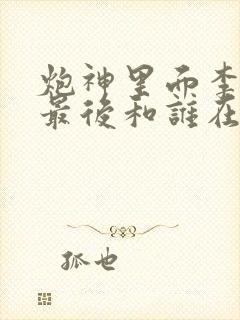 炮神里而李
最後和誰在
孤也